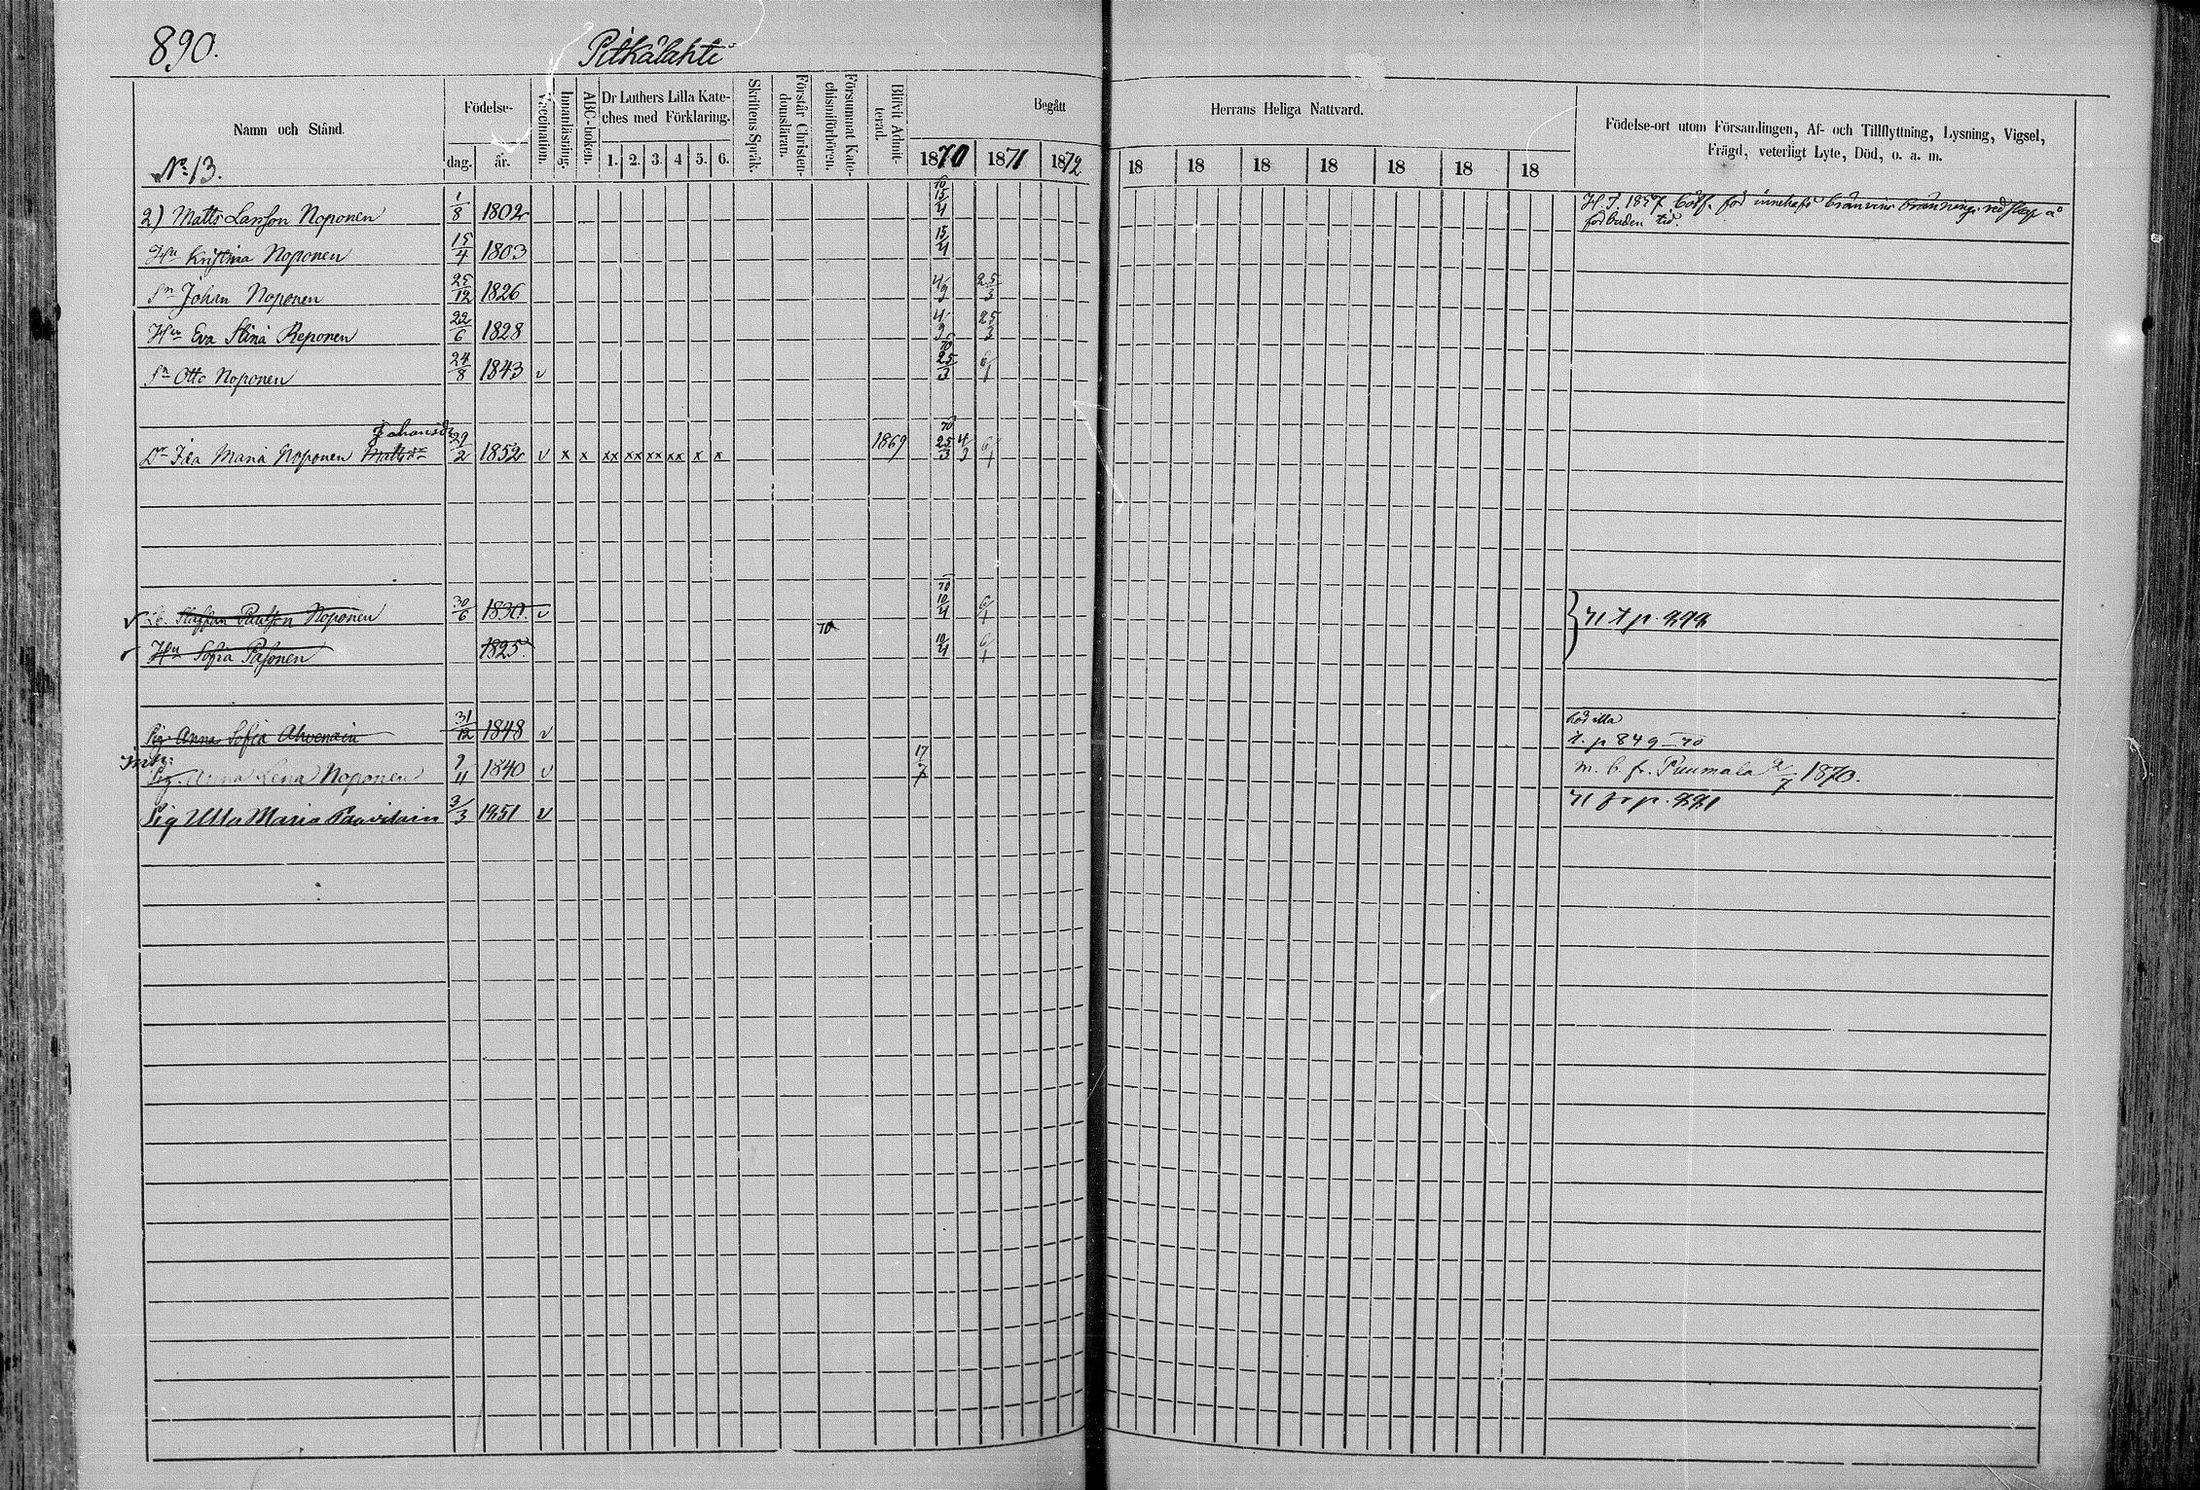 890. Pitkälahti
Namn och Stånd. Födelse- dag. år. Vaccination. Innanläsning. ABC-boken. Dr Luthers Lilla Kateches med Förklaring. 1. 2. 3. 4 5. 6. Skriftens Språk. Förstår Christendomsläran. Försummat Katechismiförhören. Blifvit Admitterad. Begått Herrans Heliga Nattvard. Födelse-ort utom Församlingen, Af- och Tillflyttning, Lysning, Vigsel, Frägd, veterligt Lyte, Död, o. a. m.
No 13. 1870 1871 1872 18 18 18 18 18 18 18
2) Matts Larsson Noponen 1/8 1802 15/4 H. T. 1857 bötf. för innehaft bränvins bränningsredskap å förbuden tid.
Hu Kristina Noponen 15/4 1803 15/4
Sn Johan Noponen 25/12 1826 4/9 25/3
Hu Eva Stina Reponen 22/6 1828 4/9 25/3
Sn Otto Noponen 24/8 1843 v 70 25/3 6/1
Johansdr
Dr Ida Maria Noponen Mattsdr 29/2 1852 v x x xx xx xx xx x x 1869 70 25/3 4/9 6/1
Staffan Paulsson Noponen 30/6 1830. v 70 10/4 6/1 71 t p. 892
Hu Sofia Pasonen 1825. 70 10/4 6/1
Pig Anna Sofia Ahvenain 31/12 1848 v t. p 849 - 70
Pig. Anna Lena Noponen 9/11 1840 v 17/7 m. b. fr. Puumala 2/7 1870.
Pig Ulla Maria Paavilain 3/3 1851 v 71 fr p. 881